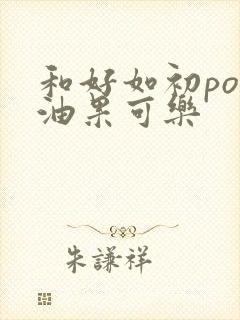 和好如初po
油果可樂
朱謙祥